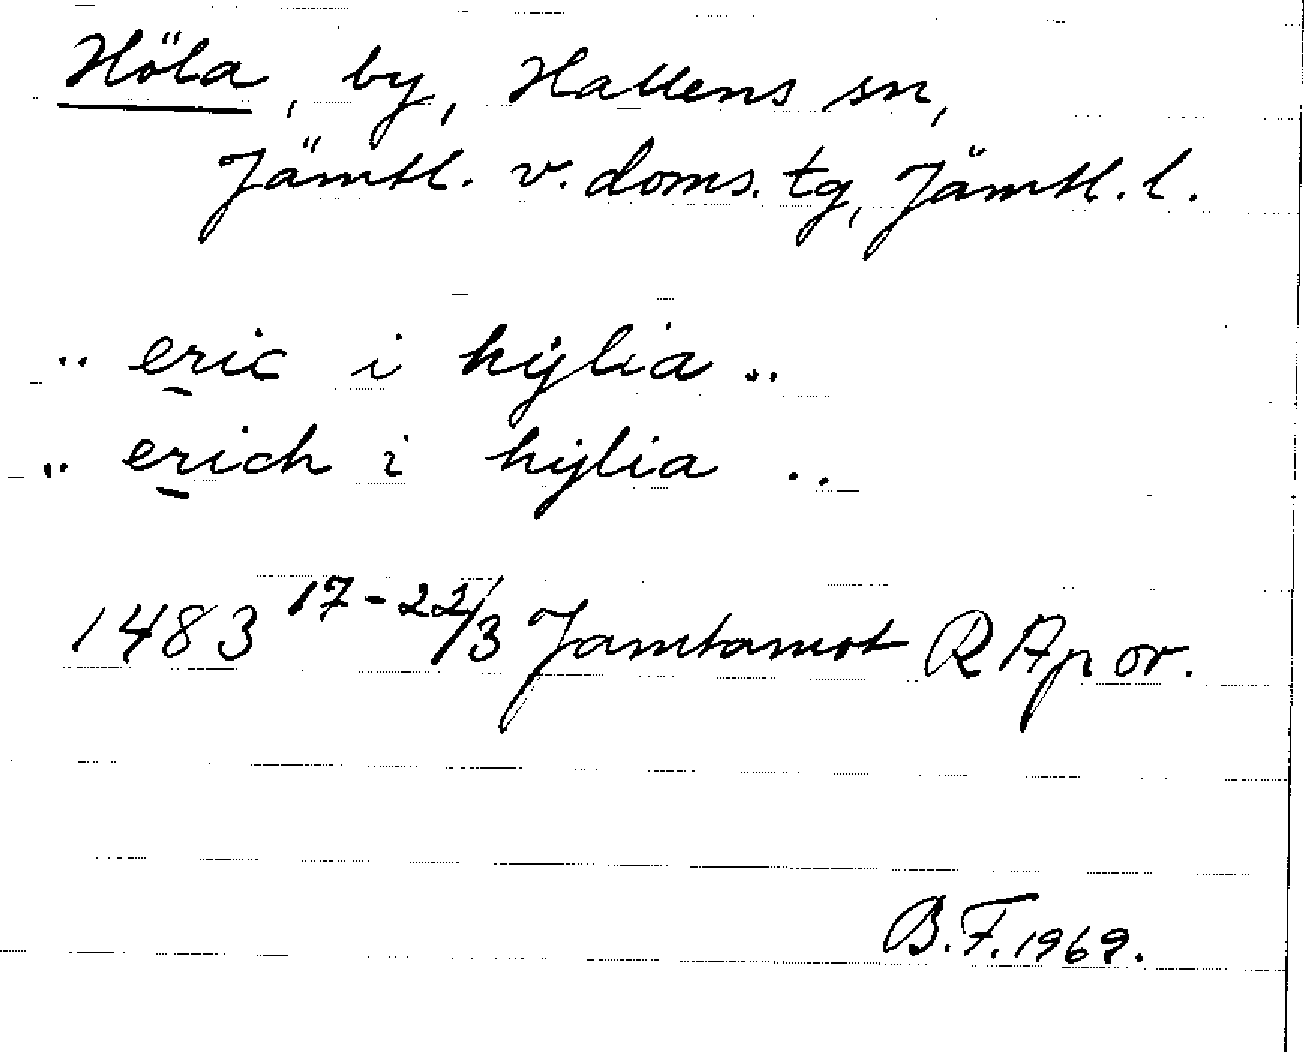 Höla, by, Hallens sn,
Jämtl. v. doms. tg, Jämtl. l.
.. eric i hÿlia ..
.. erich i hÿlia ..
1483 17-22/3 Jamtamot RAp or.
B.F. 1969.